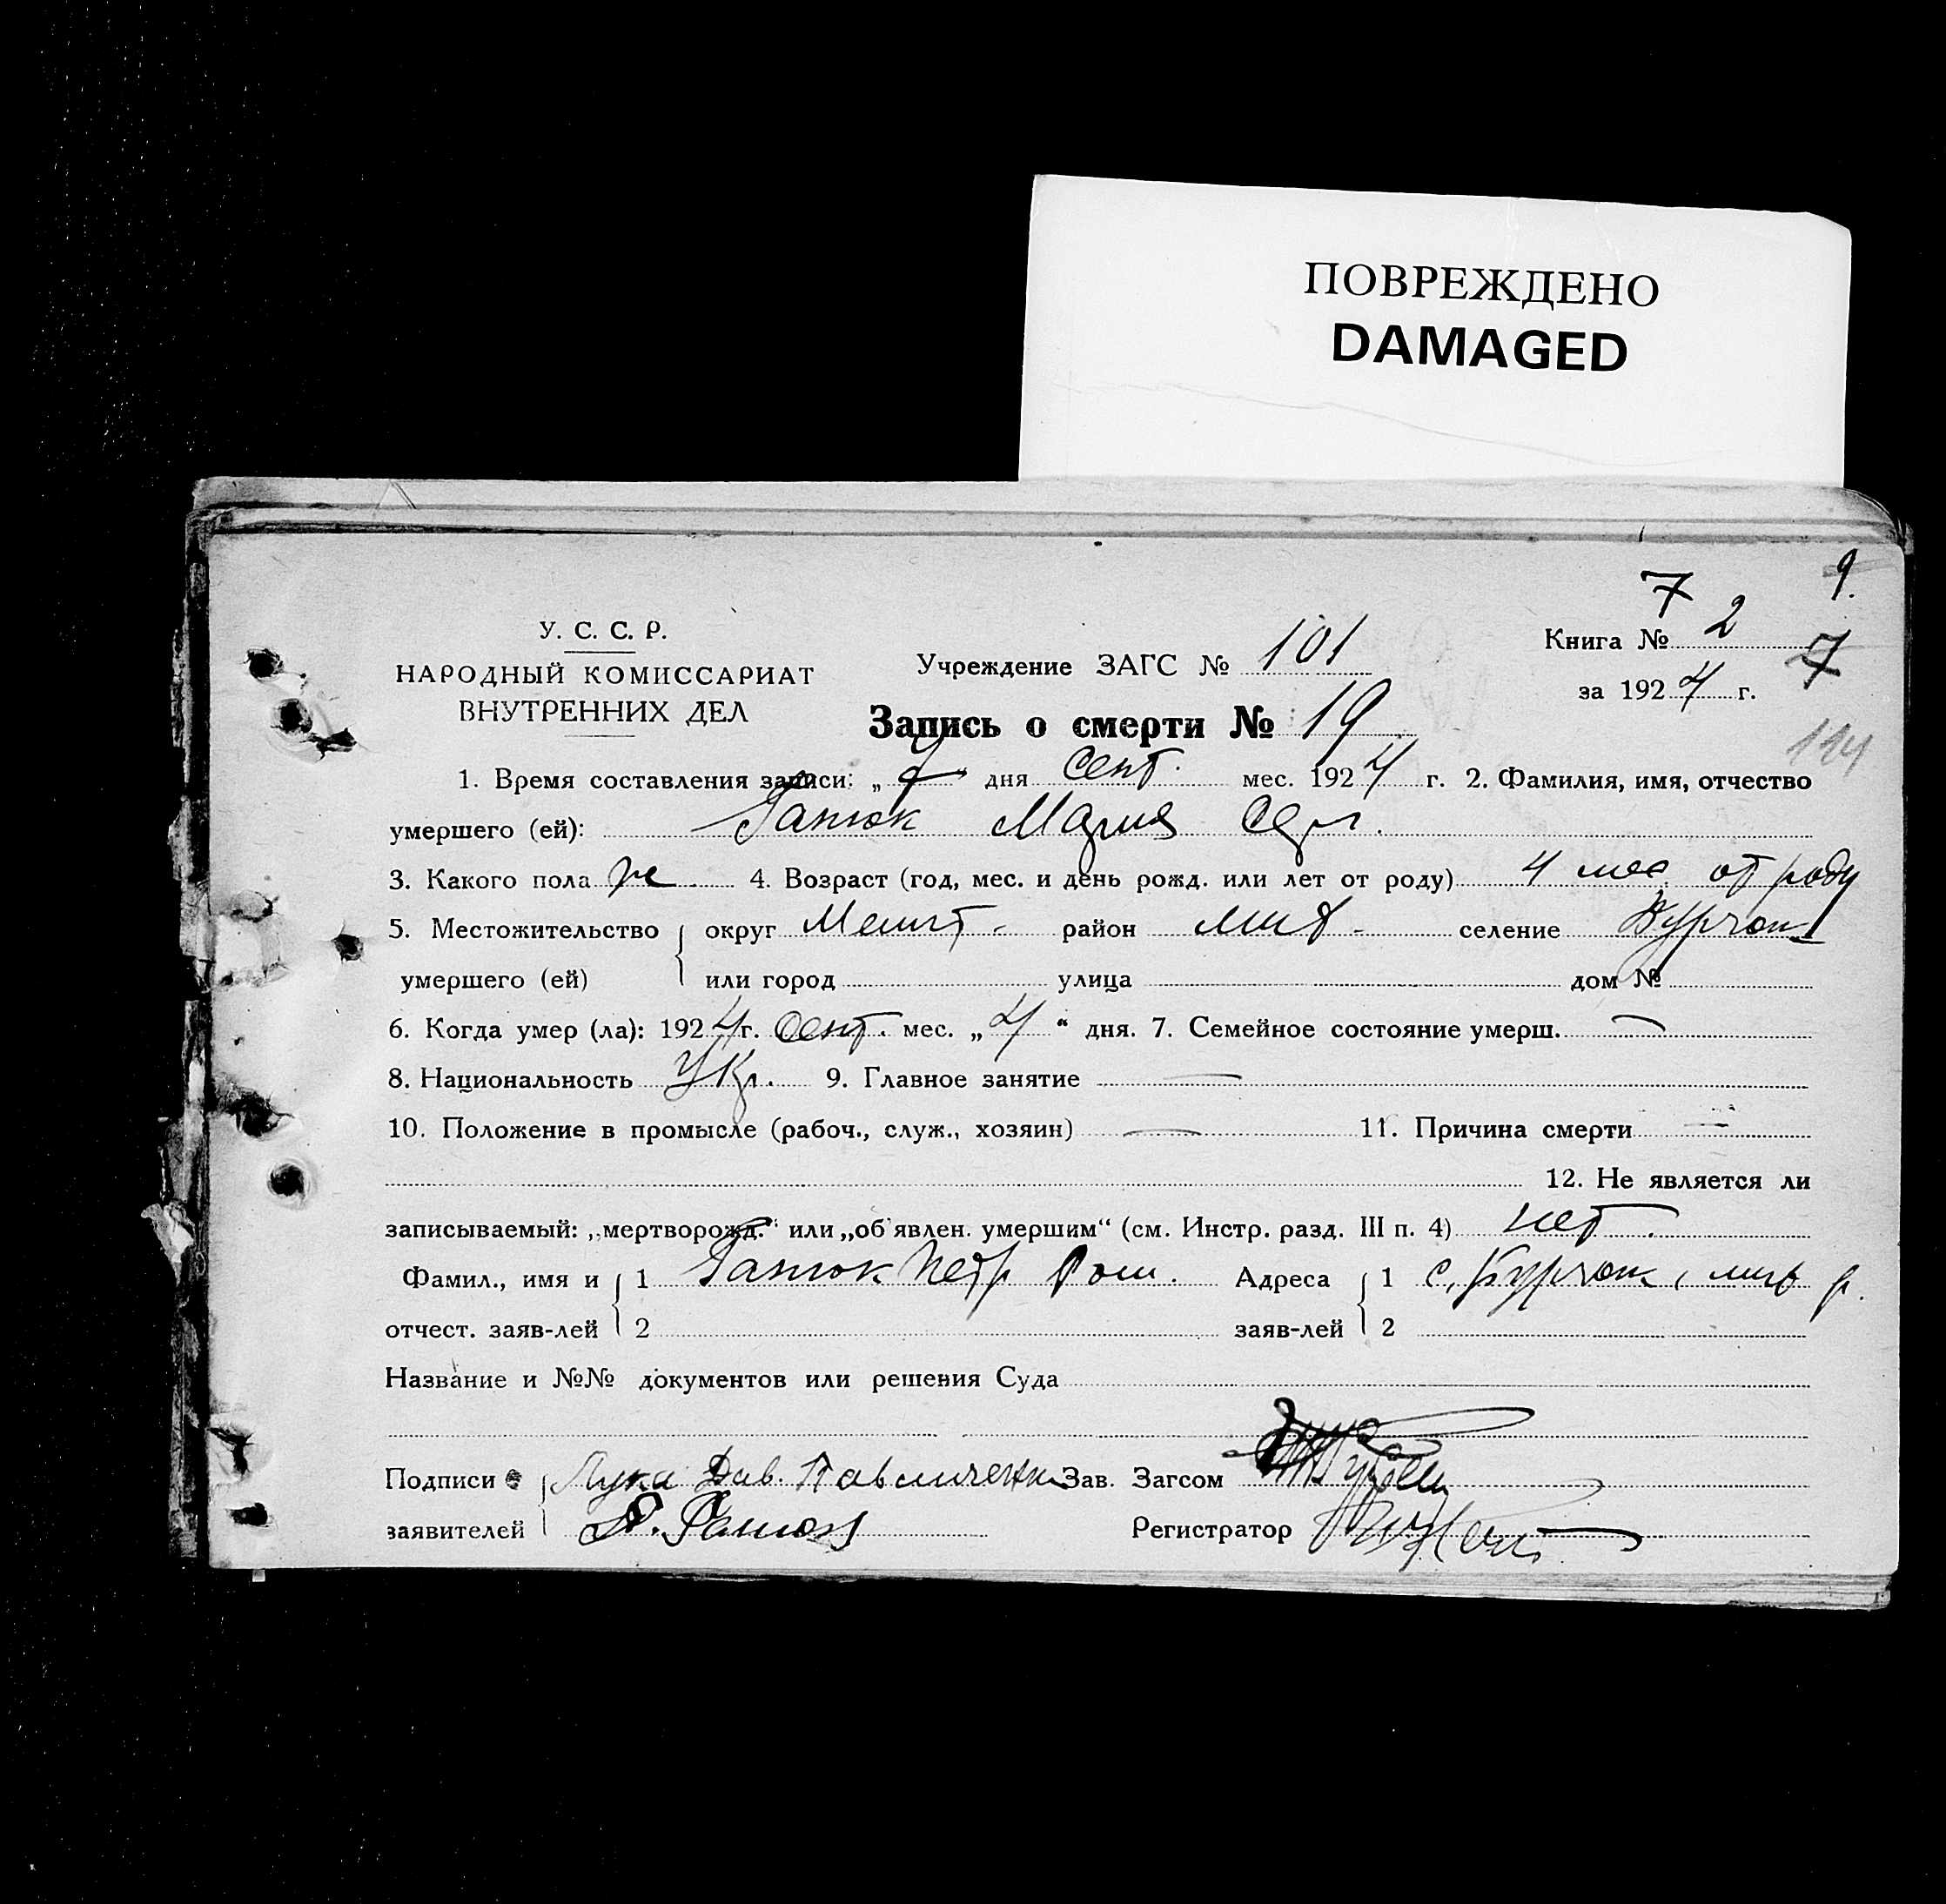 ПОВРЕЖДЕНО
DAMAGED
7 9.
У. С. С. Р.
НАРОДНЫЙ КОМИССАРИАТ
ВНУТРЕННИХ ДЕЛ
Учреждение ЗАГС № 101
Книга № 2
7
за 1924 г.
Запись о смерти № 19
114
1. Время составления записи: „ “ дня сент. мес. 1924 г. 2. Фамилия, имя, отчество
умершего (ей): Мария
3. Какого пола же 4. Возраст (год, мес. и день рожд. или лет от роду) 4 мес. от роду
5. Местожительство округ район селение
умершего (ей) или город улица дом №
6. Когда умер (ла): 1924 г. сент. мес. „4“ дня. 7. Семейное состояние умерш. —
8. Национальность Укр. 9. Главное занятие —
10. Положение в промысле (рабоч., служ., хозяин) — 11. Причина смерти —
12. Не является ли
записываемый: „мертворожд.“ или „об'явлен. умершим“ (см. Инстр. разд. III п. 4) нет.
Фамил., имя и 1 Петр Адреса 1 с. р.
отчест. заяв-лей 2 заяв-лей 2
Название и №№ документов или решения Суда
Подписи Лука Дав. Зав. Загсом
заявителей Регистратор